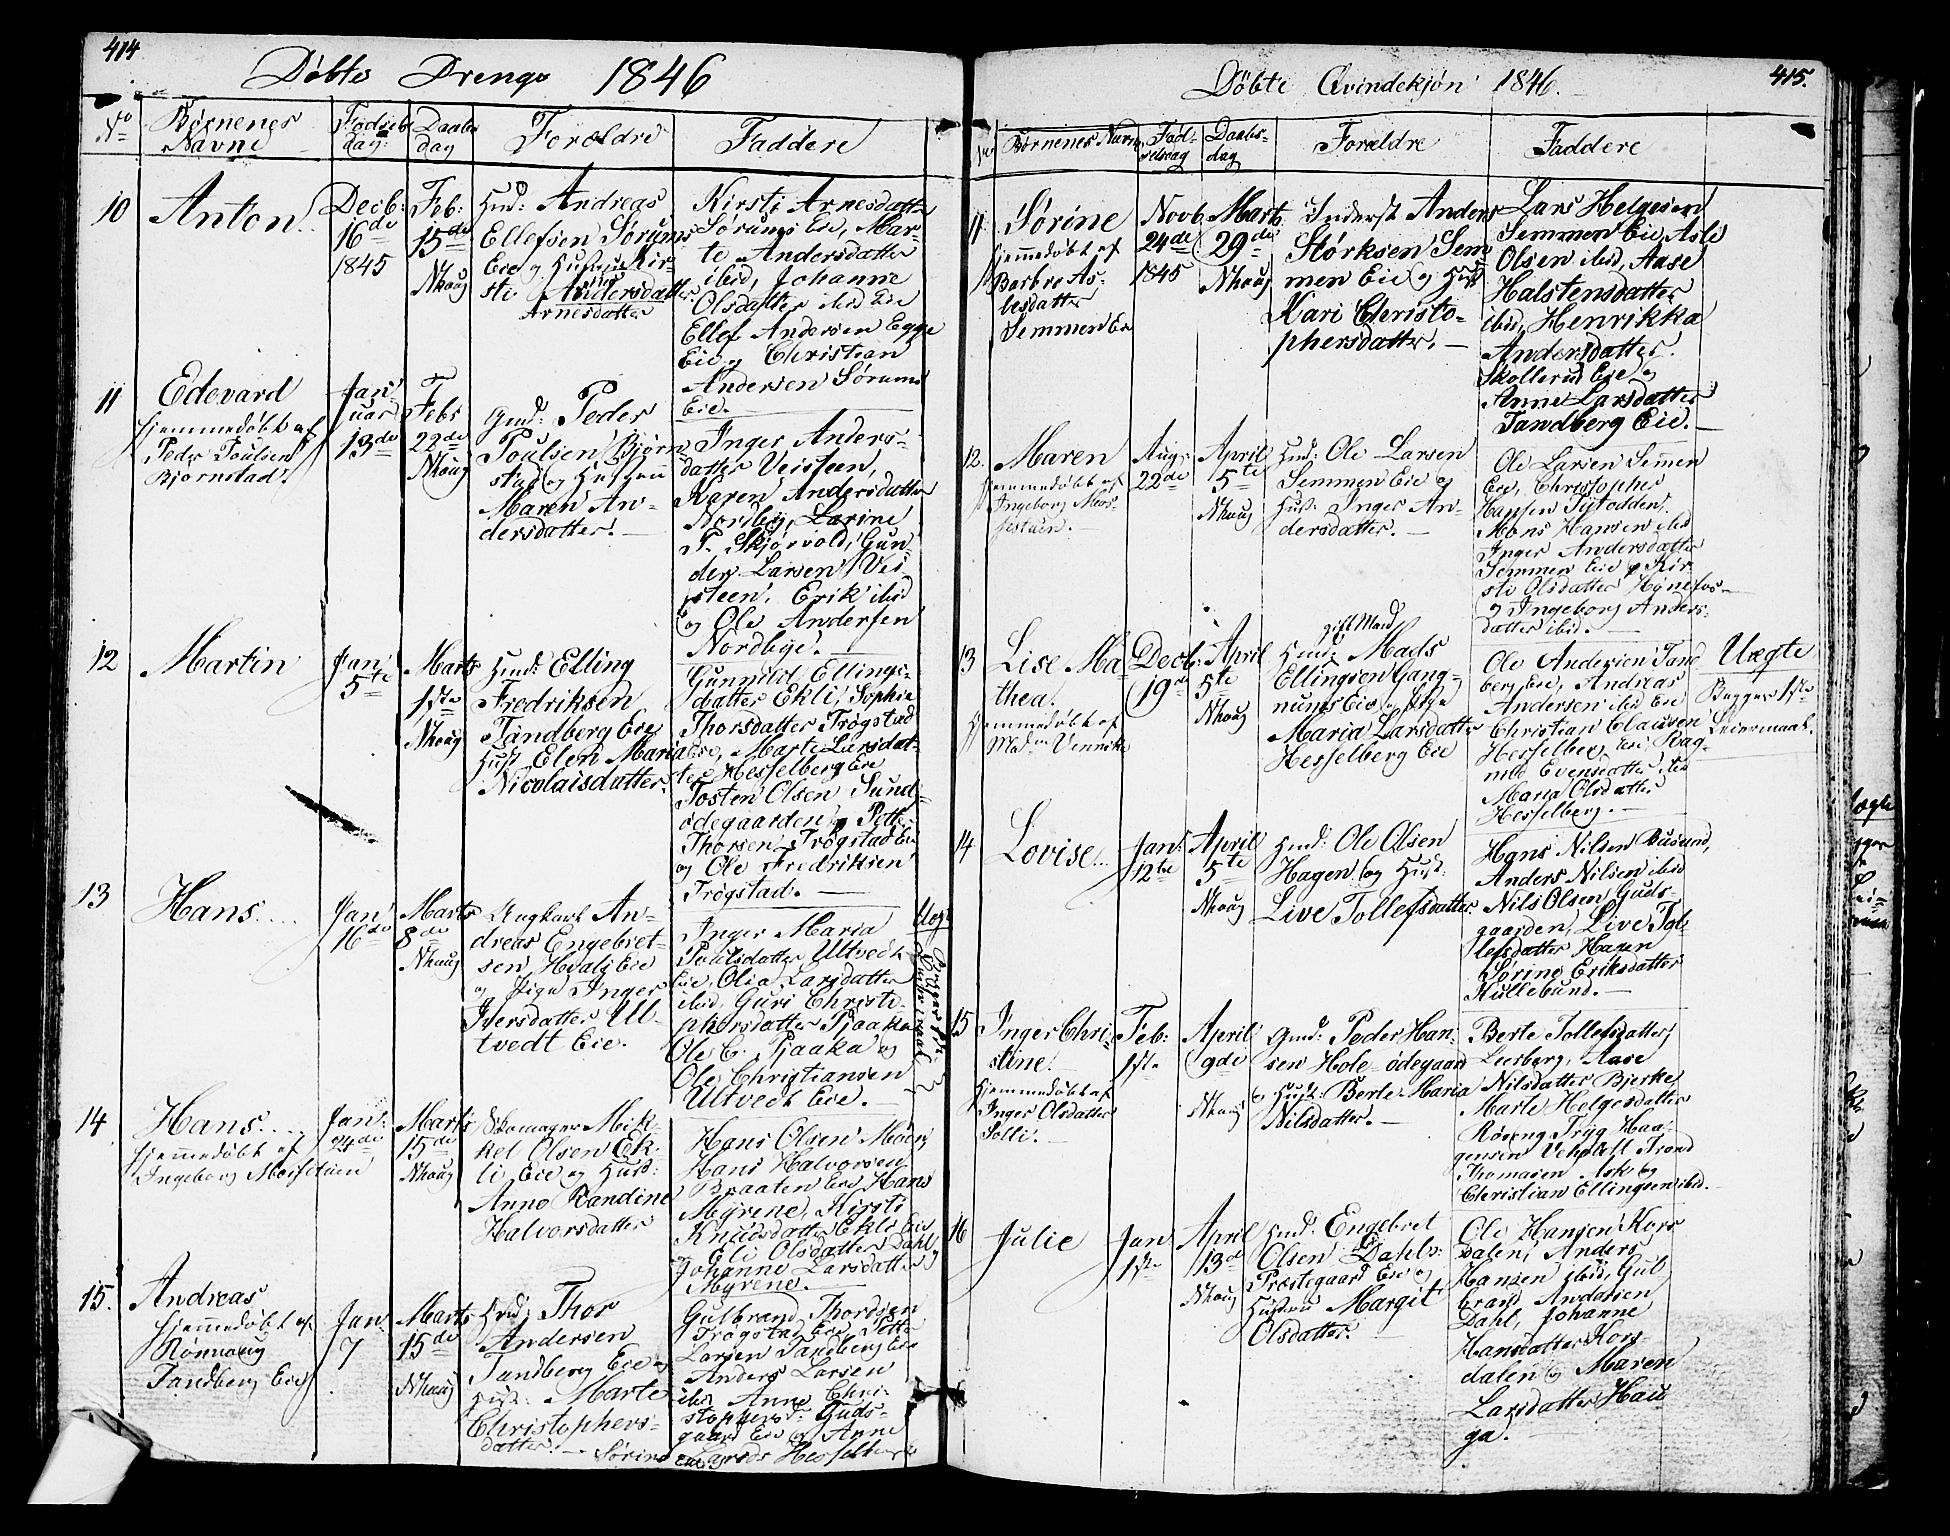 414
Døbte Drenge 1846
No
Børnenes Navne
Fødsels Dag:
Daabs Dag
Forældre
Faddere
10
Anton.
Decb:
16de
1845
Feb:
15de
Nhoug
Hmd: Andreas
Ellefsen Sørums
Eie og Hustrue Kir-
sti Andersdatter
Arnesdatter
Kirsti Arnesdatter
Sørums Eie, Mar-
te Andersdatter
ibid, Johanne
Olsdatter ibid Eie
Ellef Andersen Egge
Eie og Christian
Andersen Sørums
Eie.
11
Edevard
hjemmedøbt af
Peder Poulsen
Bjørnstad.
Jan-
uar
13de
Febr
22de
Nhoug
Gmd: Peder
Poulsen Bjørn
stad og Hustrue
Maren An-
dersdatter.
Inger Anders-
datter Veisteen,
Karen Andersdatter
Nordby, Larine
P. Skjørvold, Gun-
der Larsen Vei-
steen, Erik ibid
og Ole Andersen
Nordbye.
12
Martin
Jan
5te
Marts
1ste
Nhoug
Hmd: Elling
Fredriksen
Tandberg Eie
Hust: Elen Maria
Nicolaisdatter.
Gunnild Ellings-
datter Ekli, Sophie
Thorsdatter Trøgstad
Eie, Marte Larsdat-
ter Hesselberg Eie
Tosten Olsen Sund-
ødegaarden og Petter
Thorsen Trøgstad Eie
og Ole Fredriksen
Trøgstad.
13
Hans.
Jan
16de
Marts
8de
Nhoug
Ungkarl An-
dreas Engebret-
sen, Hvals Eie
og Pige Inger
Iversdatter Ul-
tvedt Eie.
Inger Maria
Poulsdatter Ultvedt
Eie, Olia Larsdatter
ibid, Guri Christo-
phersdatter Pjaaka
Ole C. Pjaaka og
Ole Christiansen
Ultvedt Eie.
14
Hans.
hjemmedøbt af
Ingeborg Morsstuen
Jan:
24de
Marts
15de
Nhoug
Skomager Mik-
kel Olsen Ek-
li Eie og Hust:
Anne Randine
Halvorsdatter
Hans Olsen Moen,
Hans Halvorsen
Braaten Eie, Hans
Myrene, Kirsti
Knudsdatter Ekli Eie
og Eli Olsdatter Dahl
Johanne Larsdatter
Myrene.
15.
Andreas
hjemmedøbt af
Rønnaug
Tandberg Eie
Jan
7
Marts
15de
Nhoug
Hmd: Thor
Andersen
Tandberg Eie og
Hust: Marte
Christophers-
datter.
Gulbrand Thordsen
Trøgstad Eie, Petter
Larsen Tandberg Eie
Anders Larsen
ibid Anne Chri-
stophersd: Guds-
gaard Eie og Anne
415.
Døbte Qvindekjøn 1846.
No
Børnenes Navn
Fød-
selsdag
Daabs-
dag
Forældre
Faddere
11
Sørine
hjemmedøbt af
Barbro As-
lesdatter
Semmen Eie
Novb
24de
1845
Marts
29de
Nhoug
Inderst Anders
Størksen Sem
men Eie og Hust
Kari Christo-
phersdatter.
Lars Helgesen
Semmen Eie, Asle
Olsen ibid, Aase
Halstensdatter
ibid, Henrikka
Andersdatter
Skollerud Eie og
Anne Larsdatter
Tandberg Eie.
12.
Maren
hjemmedøbt af
Ingeborg Mors-
stuen.
Aug:
22de
April
5te
Nhoug
Hmd: Ole Larsen
Semmen Eie og
Hust: Inger An-
dersdatter.
Ole Larsen Semmen
Eie, Christopher
Hansen Tyrodden,
Mons Hansen ibid
Inger Andersdatter
Semmen Eie, Kir-
sti Olsdatter Hønefos
og Ingeborg Anders-
datter ibid.
13
Lise Ma-
thea.
Hjemmedøbt af
Decb:
19de
April
5te
Nhoug
gift Mand
Hmd: Mads
Ellingsen Gang-
nums Eie og Pige
Maria Larsdatter
Hesselberg Eie
Ole Andersen Tand
berg Eie, Andreas
Andersen ibid Eie
Christian Clausen
Hesselberg Eie, Rag-
nild Evensdatter ibid
Maria Olsdatter
Hesselberg.
Uægte
Begges 1ste
Leiermaal.
14
Lovise.
Jan:
12te
April
5te
Nhoug
Hmd: Ole Olsen
Hagen og Hust:
Live Tollefsdatter.
Hans Nilsen Busund,
Anders Nilsen ibid
Nils Olsen Guds-
gaarden, Live Tol-
lefsdatter Hagen
Sørine Eriksdatter
Hullebund.
15
Inger Chri-
stine.
Hjemmedøbt af
Inger Olsdatter
Solli.
Feb:
1ste
April
9de
Nhoug
Gmd: Peder Han-
sen Hole-ødegaard
og Hust: Berte Maria
Nilsdatter.
Berte Tollefsdatter
Leesberg, Aase
Nilsdatter Bjerke,
Marte Helgesdatter
Røseng Tryg Haa-
gensen Vehsdall Trond
Thomasen Ask og
Christian Ellingsen ibid.
16
Julie
Jan
1ste
April
13de
Nhoug
Hmd: Engebret
Olsen Dahls-
Præstegaard Eie og
Hustrue Margit
Olsdatter.
Ole Hansen Kors
dalen, Anders
Hansen ibid, Gul
brand Andersen
Dahl, Johanne
Hansdatter Kors-
dalen og Maren
Larsdatter Hau
ga.